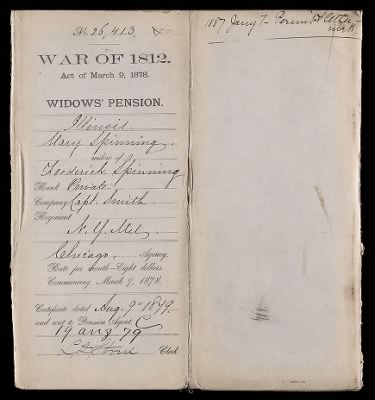 No. 26,413,
WAR OF 1812.
Act of March 9, 1878.
WIDOWS' PENSION.
Illinois.
Mary Spinning.
widow of
Frederick Spinning
Rank Private
Company Capt. Smith.
Regiment
N.Y. Mil.
Chicago, Agency.
Rate per month—Eight dollars.
Commencing March 9, 1878.
Certificate dated Aug. 9th 1879,
and sent to Pension Agent,
19 aug 79
Clerk.
1887 Jany 7